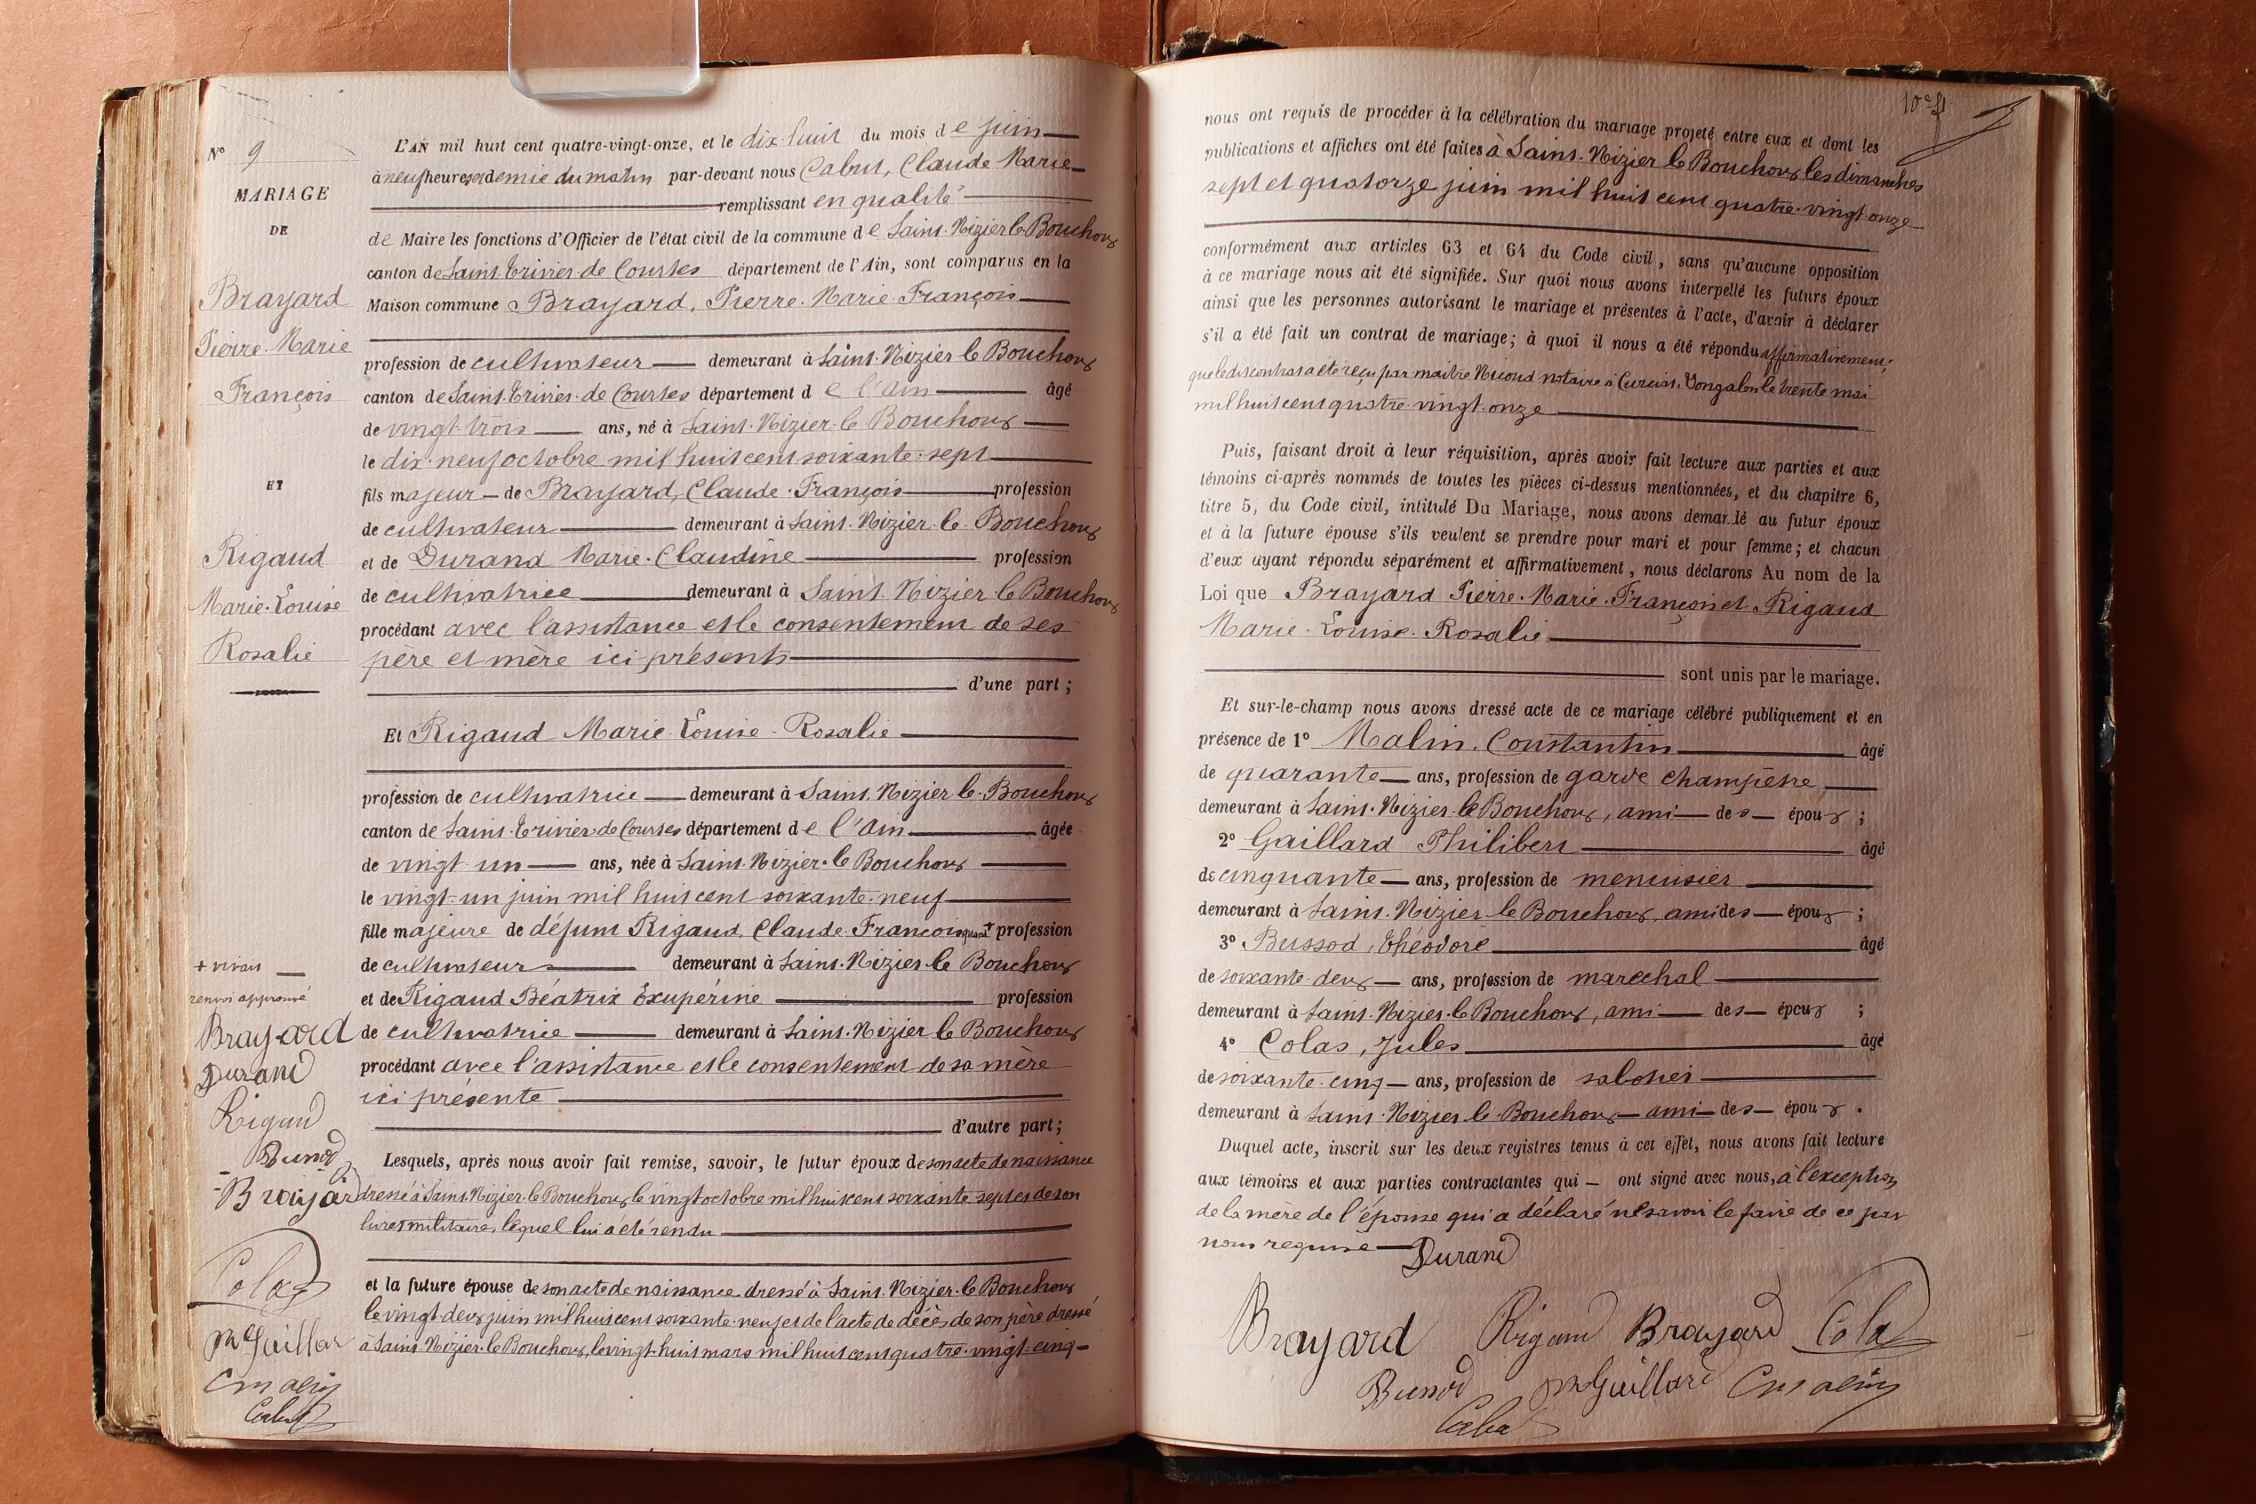 N° 9
MARIAGE
DE
Brayard
Pierre-Marie
François
ET
Rigaud
Marie-Louise
Rosalie
+ vivait
renvoi approuvé
Brayard
Durand
Rigaud
Bussod
Brayard
Colas
Ph Gaillard
C Malin
Cabut
L'AN mil huit cent quatre-vingt-onze, et le dix-huit du mois de juin
à neuf heures et demie du matin par-devant nous Cabut, Claude Marie
remplissant en qualité
de Maire les fonctions d'Officier de l'état civil de la commune de Saint-Nizier le Bouchoux
canton de Saint-Trivier de Courtes département de l'Ain, sont comparus en la
Maison commune Brayard, Pierre-Marie-François
profession de cultivateur demeurant à Saint-Nizier le Bouchoux
canton de Saint-Trivier-de Courtes département de l'Ain âgé
de vingt-trois ans, né à Saint-Nizier-le Bouchoux
le dix-neuf octobre mil huit cent soixante-sept
fils majeur de Brayard, Claude-François profession
de cultivateur demeurant à Saint-Nizier-le Bouchoux
et de Durand Marie-Claudine profession
de cultivatrice demeurant à Saint-Nizier le Bouchoux
procédant avec l'assistance et le consentement de ses
père et mère ici présents
d'une part ;
Et Rigaud Marie-Louise-Rosalie
profession de cultivatrice demeurant à Saint-Nizier le-Bouchoux
canton de Saint-Trivier de Courtes département de l'Ain âgée
de vingt-un ans, née à Saint-Nizier-le Bouchoux
le vingt-un juin mil huit cent soixante-neuf
fille majeure de défunt Rigaud, Claude-François quand + profession
de cultivateur demeurant à Saint-Nizier-le Bouchoux
et de Rigaud Béatrix Exupérine profession
de cultivatrice demeurant à Saint-Nizier le Bouchoux
procédant avec l'assistance et le consentement de sa mère
ici présente
d'autre part ;
Lesquels, après nous avoir fait remise, savoir, le futur époux de son acte de naissance
dressé à Saint-Nizier-le Bouchoux le vingt octobre mil huit cent soixante-sept et de son
livret militaire, lequel lui a été rendu
et la future épouse de son acte de naissance dressé à Saint-Nizier-le Bouchoux
le vingt-deux juin mil huit cent soixante-neuf et de l'acte de décès de son père dressé
à Saint-Nizier-le Bouchoux, le vingt-huit mars mil huit cent quatre-vingt-cinq
nous ont requis de procéder à la célébration du mariage projeté entre eux et dont les
publications et affiches ont été faites à Saint-Nizier le Bouchoux les dimanches
sept et quatorze juin mil huit cent quatre-vingt-onze
conformément aux articles 63 et 64 du Code civil, sans qu'aucune opposition
à ce mariage nous ait été signifiée. Sur quoi nous avons interpellé les futurs époux
ainsi que les personnes autorisant le mariage et présentes à l'acte, d'avoir à déclarer
s'il a été fait un contrat de mariage ; à quoi il nous a été répondu affirmativement,
que ledit contrat a été reçu par maître Nicoud notaire à Curciat-Dongalon le trente mai
mil huit cent quatre-vingt-onze
Puis, faisant droit à leur réquisition, après avoir fait lecture aux parties et aux
témoins ci-après nommés de toutes les pièces ci-dessus mentionnées, et du chapitre 6,
titre 5, du Code civil, intitulé Du Mariage, nous avons demandé au futur époux
et à la future épouse s'ils veulent se prendre pour mari et pour femme ; et chacun
d'eux ayant répondu séparément et affirmativement, nous déclarons Au nom de la
Loi que Brayard Pierre-Marie-François et Rigaud
Marie-Louise-Rosalie
sont unis par le mariage.
Et sur-le-champ nous avons dressé acte de ce mariage célébré publiquement et en
présence de 1° Malin, Constantin âgé
de quarante ans, profession de garde champêtre
demeurant à Saint-Nizier-le Bouchoux, ami des époux ;
2° Gaillard Philibert âgé
de cinquante ans, profession de menuisier
demeurant à Saint-Nizier-le Bouchoux, ami des époux ;
3° Bussod, Théodore âgé
de soixante-deux ans, profession de maréchal
demeurant à Saint-Nizier-le Bouchoux, ami des époux ;
4° Colas, Jules âgé
de soixante-cinq ans, profession de sabotier
demeurant à Saint-Nizier-le-Bouchoux ami des époux.
Duquel acte, inscrit sur les deux registres tenus à cet effet, nous avons fait lecture
aux témoins et aux parties contractantes qui ont signé avec nous, à l'exception
de la mère de l'épouse qui a déclaré ne savoir le faire de ce par
nous requise
Durand
Brayard Rigaud Brayard Colas
Bussod Ph Gaillard C Malin
Cabut